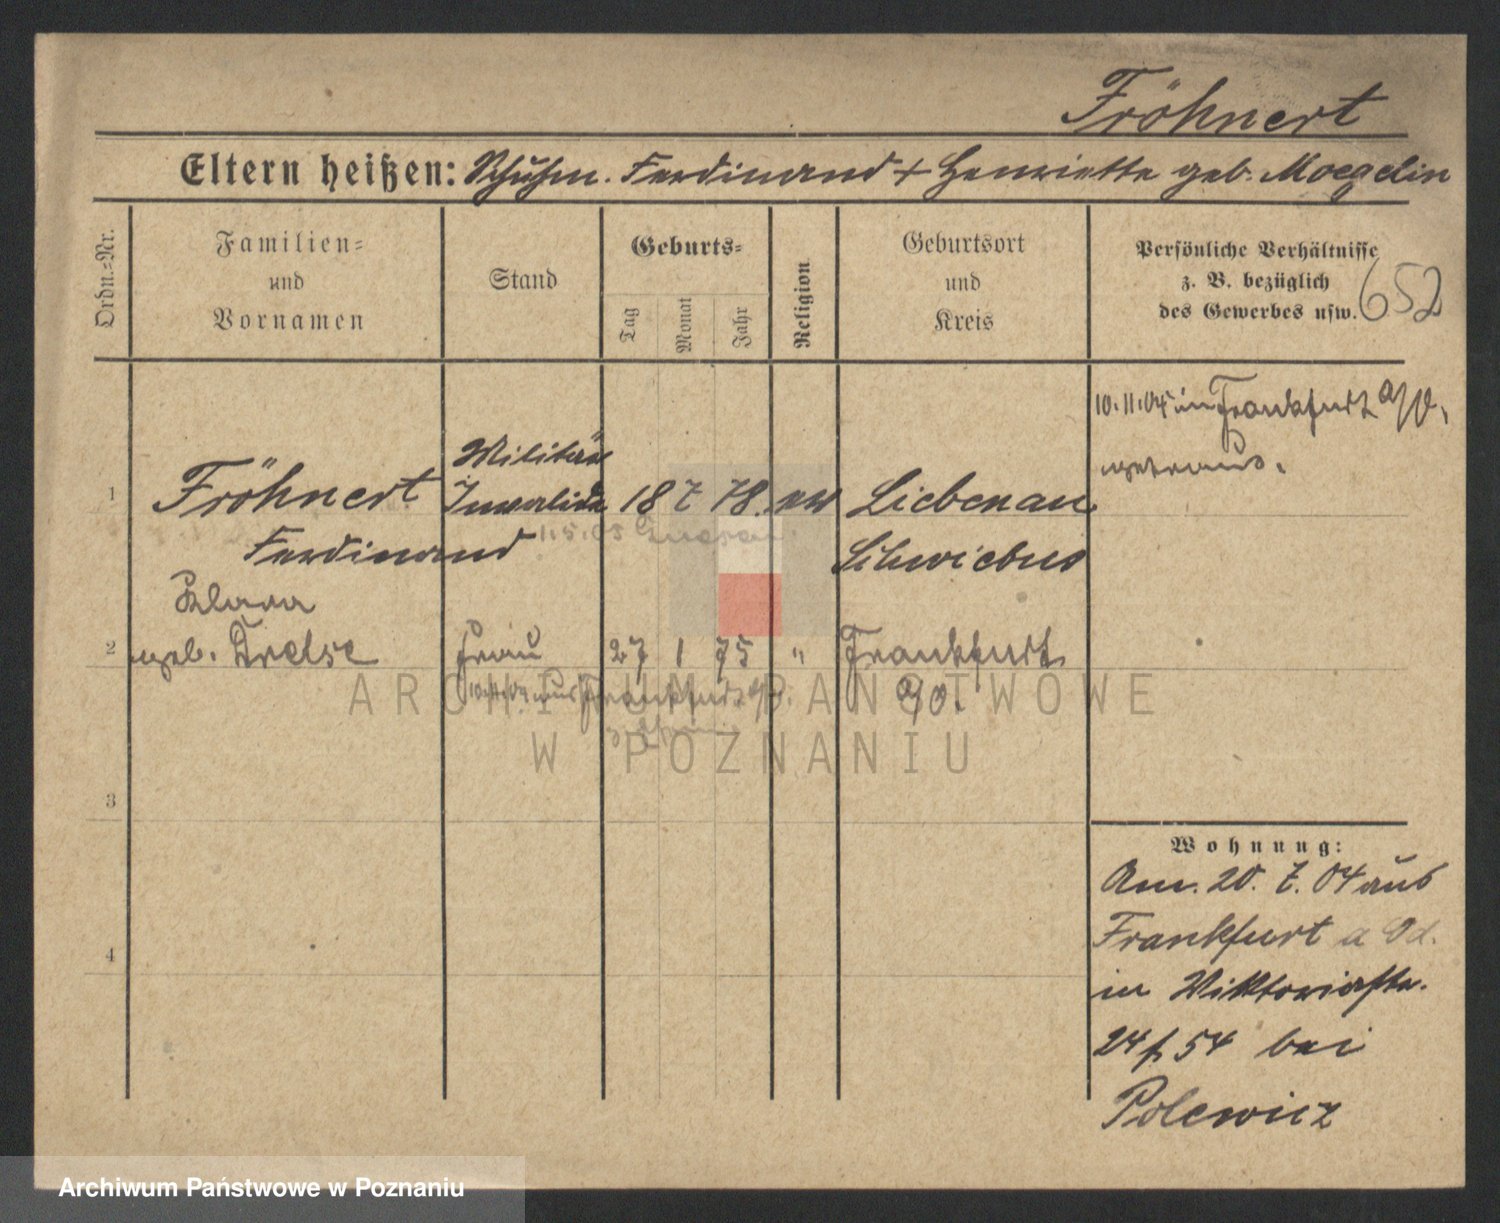 Fröhnert
Eltern heißen: Schuhm. Ferdinand + Henriette geb. Moegelin
Ordn.=Nr.
Familien=
und
Vornamen
Stand
Geburts=
Tag
Monat
Jahr
Religion
Geburtsort
und
Kreis
Persönliche Verhältnisse
z. B. bezüglich
des Gewerbes usw.
652
10.11.04 in Frankfurt a/O.
getraut.
1
Fröhnert
Ferdinand
Militär
Invalide
18 7 78
ev
Liebenau
Schwiebus
1.5.05 Gnesen
2
Klara
geb. Drelse
Frau
27 1 75
"
Frankfurt
a/O.
aus Frankfurt a/O.
3
4
Wohnung:
Am. 20. 7. 04 aus
Frankfurt a Od.
in Viktoriastr.
24 f. 54 bei
Polewicz
ARCHIWUM PAŃSTWOWE
W POZNANIU
Archiwum Państwowe w Poznaniu